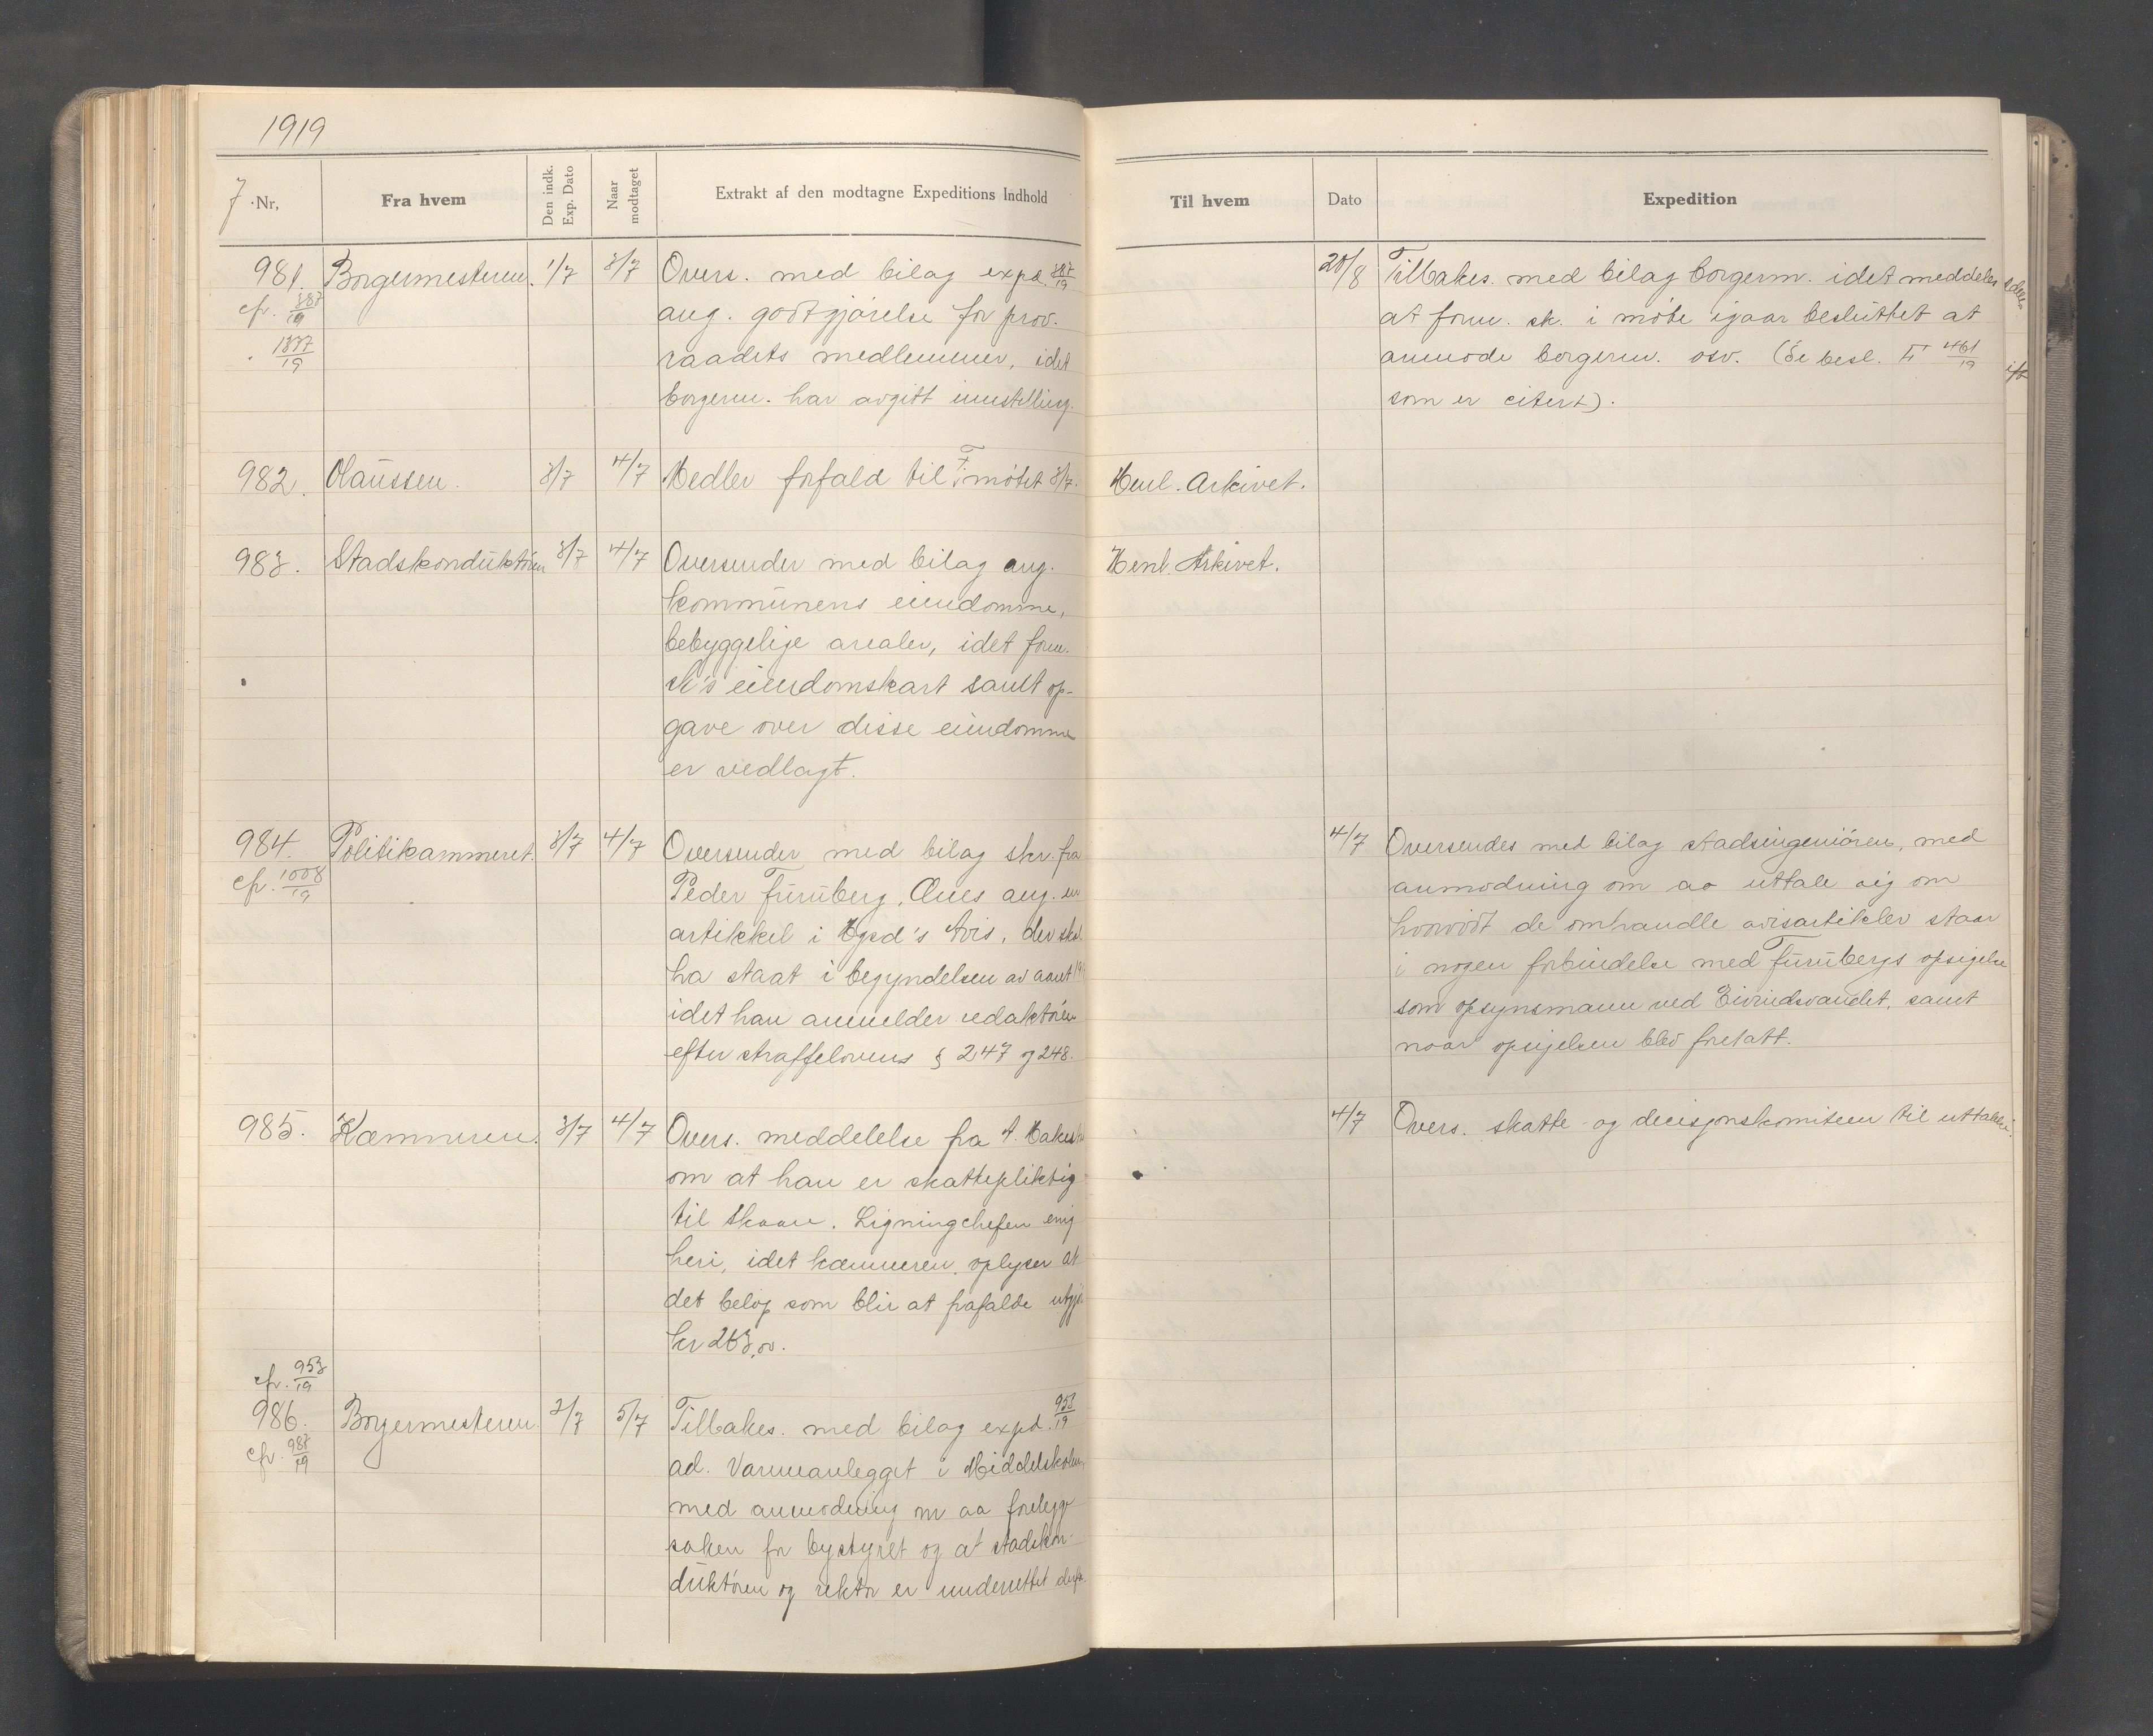 1919
7 Nr,
Fra hvem
Den indk. Exp. Dato
Naar modtaget
Extrakt af den modtagne Expeditions Indhold
Til hvem
Dato
Expedition
981. Borgermesteren. 1/7 3/7 Overs. med bilag expd. 387/19
cfr. 387/19
1337/19
ang. godtgjørelse for prov.
raadets medlemmer, idet
borgerm. har avgitt innstilling.
20/8 Tilbakes. med bilag borgerm. idet meddeles
at form. sk. i møte igaar besluttet at
anmode borgerm. osv. (Se besl. F 461/19
som er citert).
982. Olaussen. 3/7 4/7 Medler forfald til F. møtet 3/7.
Henl. Arkivet.
983. Stadskonduktøren 3/7 4/7 Oversender med bilag ang.
kommunens eiendomme,
bebyggelige arealer, idet form.
sk's eiendomskart samt op-
gave over disse eiendomme
er vedlagt.
Henl. Arkivet.
984. Politikammeret. 3/7 4/7 Oversender med bilag skr. fra
cfr. 1008/19
Peder Furuberg, Aues ang. en
artikkel i Hgsd's Avis, der skal
ha staat i begyndelsen av aaret
idet han anmelder redaktøren
efter straffelovens § 247 og 248.
4/7 Oversendes med bilag stadsingeniøren, med
anmodning om aa uttale sig om
hvorvidt de omhandle avisartikler staar
i nogen forbindelse med Furubergs opsigelse
som opsynsmann ved Eivindsvandet, samt
naar opsigelsen blev foretatt.
985. Kæmneren. 3/7 4/7 Overs. meddelelse fra A.
om at han er skattepliktig
til Skaare. Ligningchefen enig
heri, idet kæmneren oplyser at
det beløp som blir at frafalde utgjør
kr 263,00.
4/7 Overs. skatte- og decisjonskomiteen til uttalelse.
cfr. 953/19
986. Borgermesteren. 2/7 5/7 Tilbakes. med bilag expd. 953/19
cfr. 987/19
ad. Varmeanlegget i Middelskolen,
med anmodning om aa forelegge
saken for bystyret og at stadskon-
duktøren og rektor er underrettet